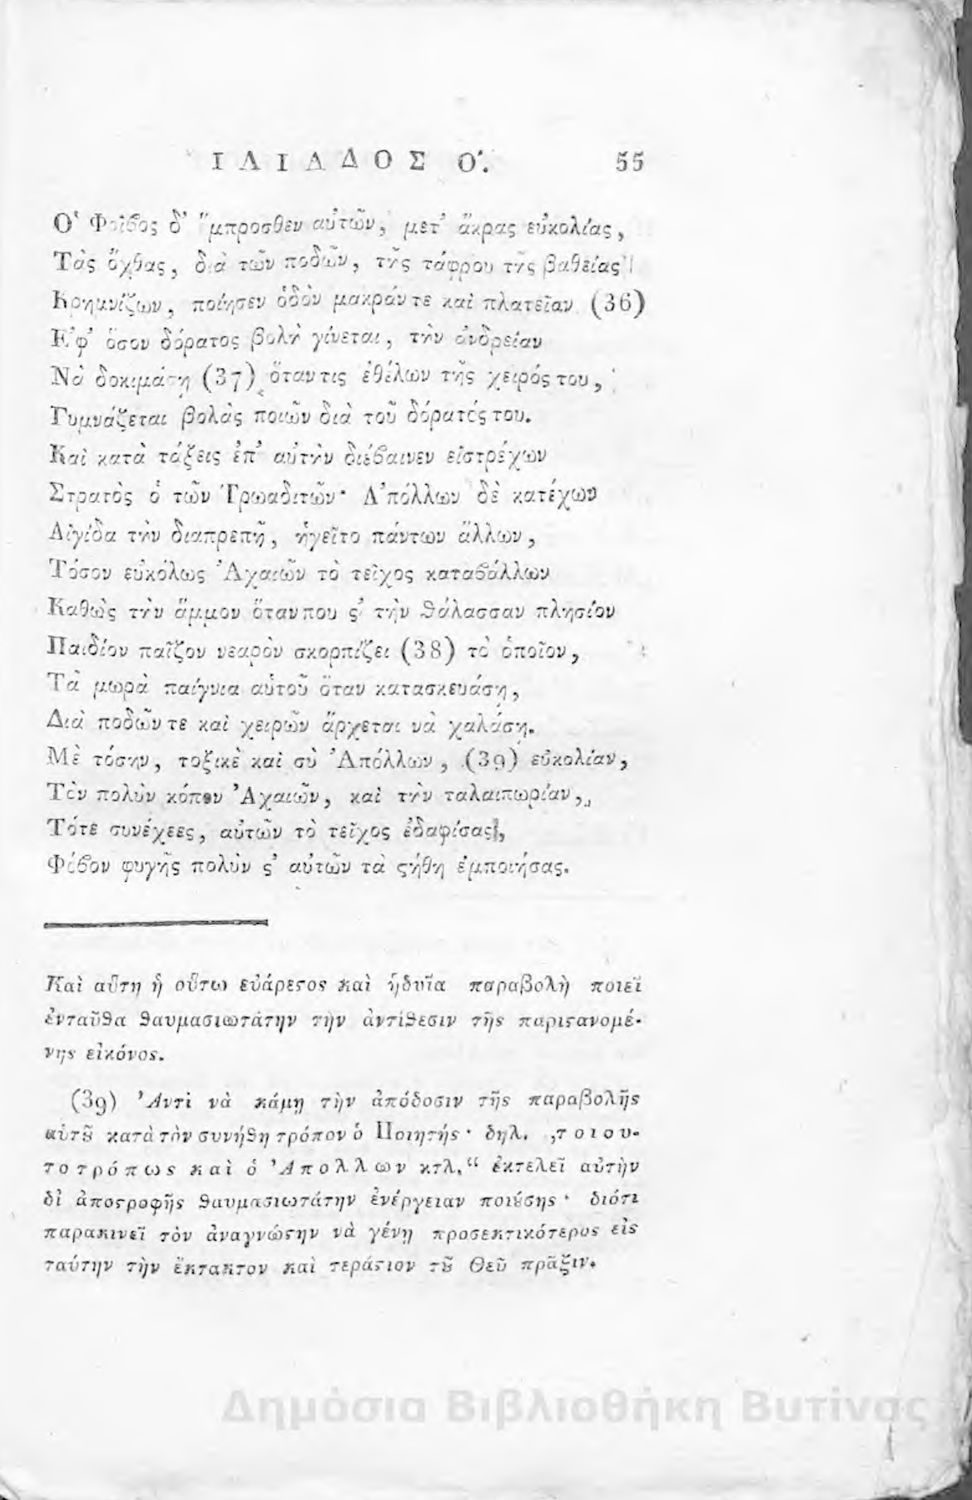 ΙΛΙΑΔΟΣ Ο΄. 55
Ὁ Φοῖβος δ' ἔμπροσθεν αὐτῶν, μετ' ἄκρας εὐκολίας,
Τὰς ὄχθας, διὰ τῶν ποδῶν, τῆς τάφρου τῆς βαθείας
Κρημνίζων, ποίησεν ὁδὸν μακράν τε καὶ πλατεῖαν (36)
Ἐφ' ὅσον δόρατος βολὴ γίνεται, τὴν ἀνδρείαν
Νὰ δοκιμάσῃ (37) ὅταν τις ἐθέλων τῆς χειρός του,
Γυμνάζεται βολὰς ποιῶν διὰ τοῦ δόρατός του.
Καὶ κατὰ τάξεις ἐπ' αὐτὴν διέβαινεν εἰστρέχων
Στρατὸς ὁ τῶν Τρωαδιτῶν· Ἀπόλλων δὲ κατέχων
Αἰγίδα τὴν διαπρεπῆ, ἡγεῖτο πάντων ἄλλων,
Τόσον εὐκόλως Ἀχαιῶν τὸ τεῖχος καταβάλλων
Καθὼς τὴν ἄμμον ὅταν που ς' τὴν θάλασσαν πλησίον
Παιδίον παῖζον νεαρὸν σκορπίζει (38) τὸ ὁποῖον,
Τὰ μωρὰ παίγνια αὑτοῦ ὅταν κατασκευάσῃ,
Διὰ ποδῶν τε καὶ χειρῶν ἄρχεται νὰ χαλάσῃ.
Μὲ τόσην, τοξικὲ καὶ σὺ Ἀπόλλων, (39) εὐκολίαν,
Τὸν πολὺν κόπον Ἀχαιῶν, καὶ τὴν ταλαιπωρίαν,
Τότε συνέχεες, αὐτῶν τὸ τεῖχος ἐδαφίσας,
Φόβον φυγῆς πολὺν ς' αὐτῶν τὰ ϛήθη ἐμποιήσας.
Καὶ αὕτη ἡ οὕτω εὐάρεϛος καὶ ἡδυῖα παραβολὴ ποιεῖ
ἐνταῦθα θαυμασιωτάτην τὴν ἀντίθεσιν τῆς παριϛανομέ-
νης εἰκόνος.
(39) Ἀντὶ νὰ κάμῃ τὴν ἀπόδοσιν τῆς παραβολῆς
αὐτȣ͂ κατὰ τὸν συνήθη τρόπον ὁ Ποιητής· δηλ. „τοιου-
τοτρόπως καὶ ὁ Ἀπολλων κτλ.“ ἐκτελεῖ αὐτὴν
δἰ ἀποϛροφῆς θαυμασιωτάτην ἐνέργειαν ποιȣ́σης· διότι
παρακινεῖ τὸν ἀναγνώϛην νὰ γένῃ προσεκτικότερος εἰς
ταύτην τὴν ἔκτακτον καὶ τεράϛιον τȣ͂ Θεῦ πρᾶξιν.
Δημόσια Βιβλιοθήκη Βυτίνας